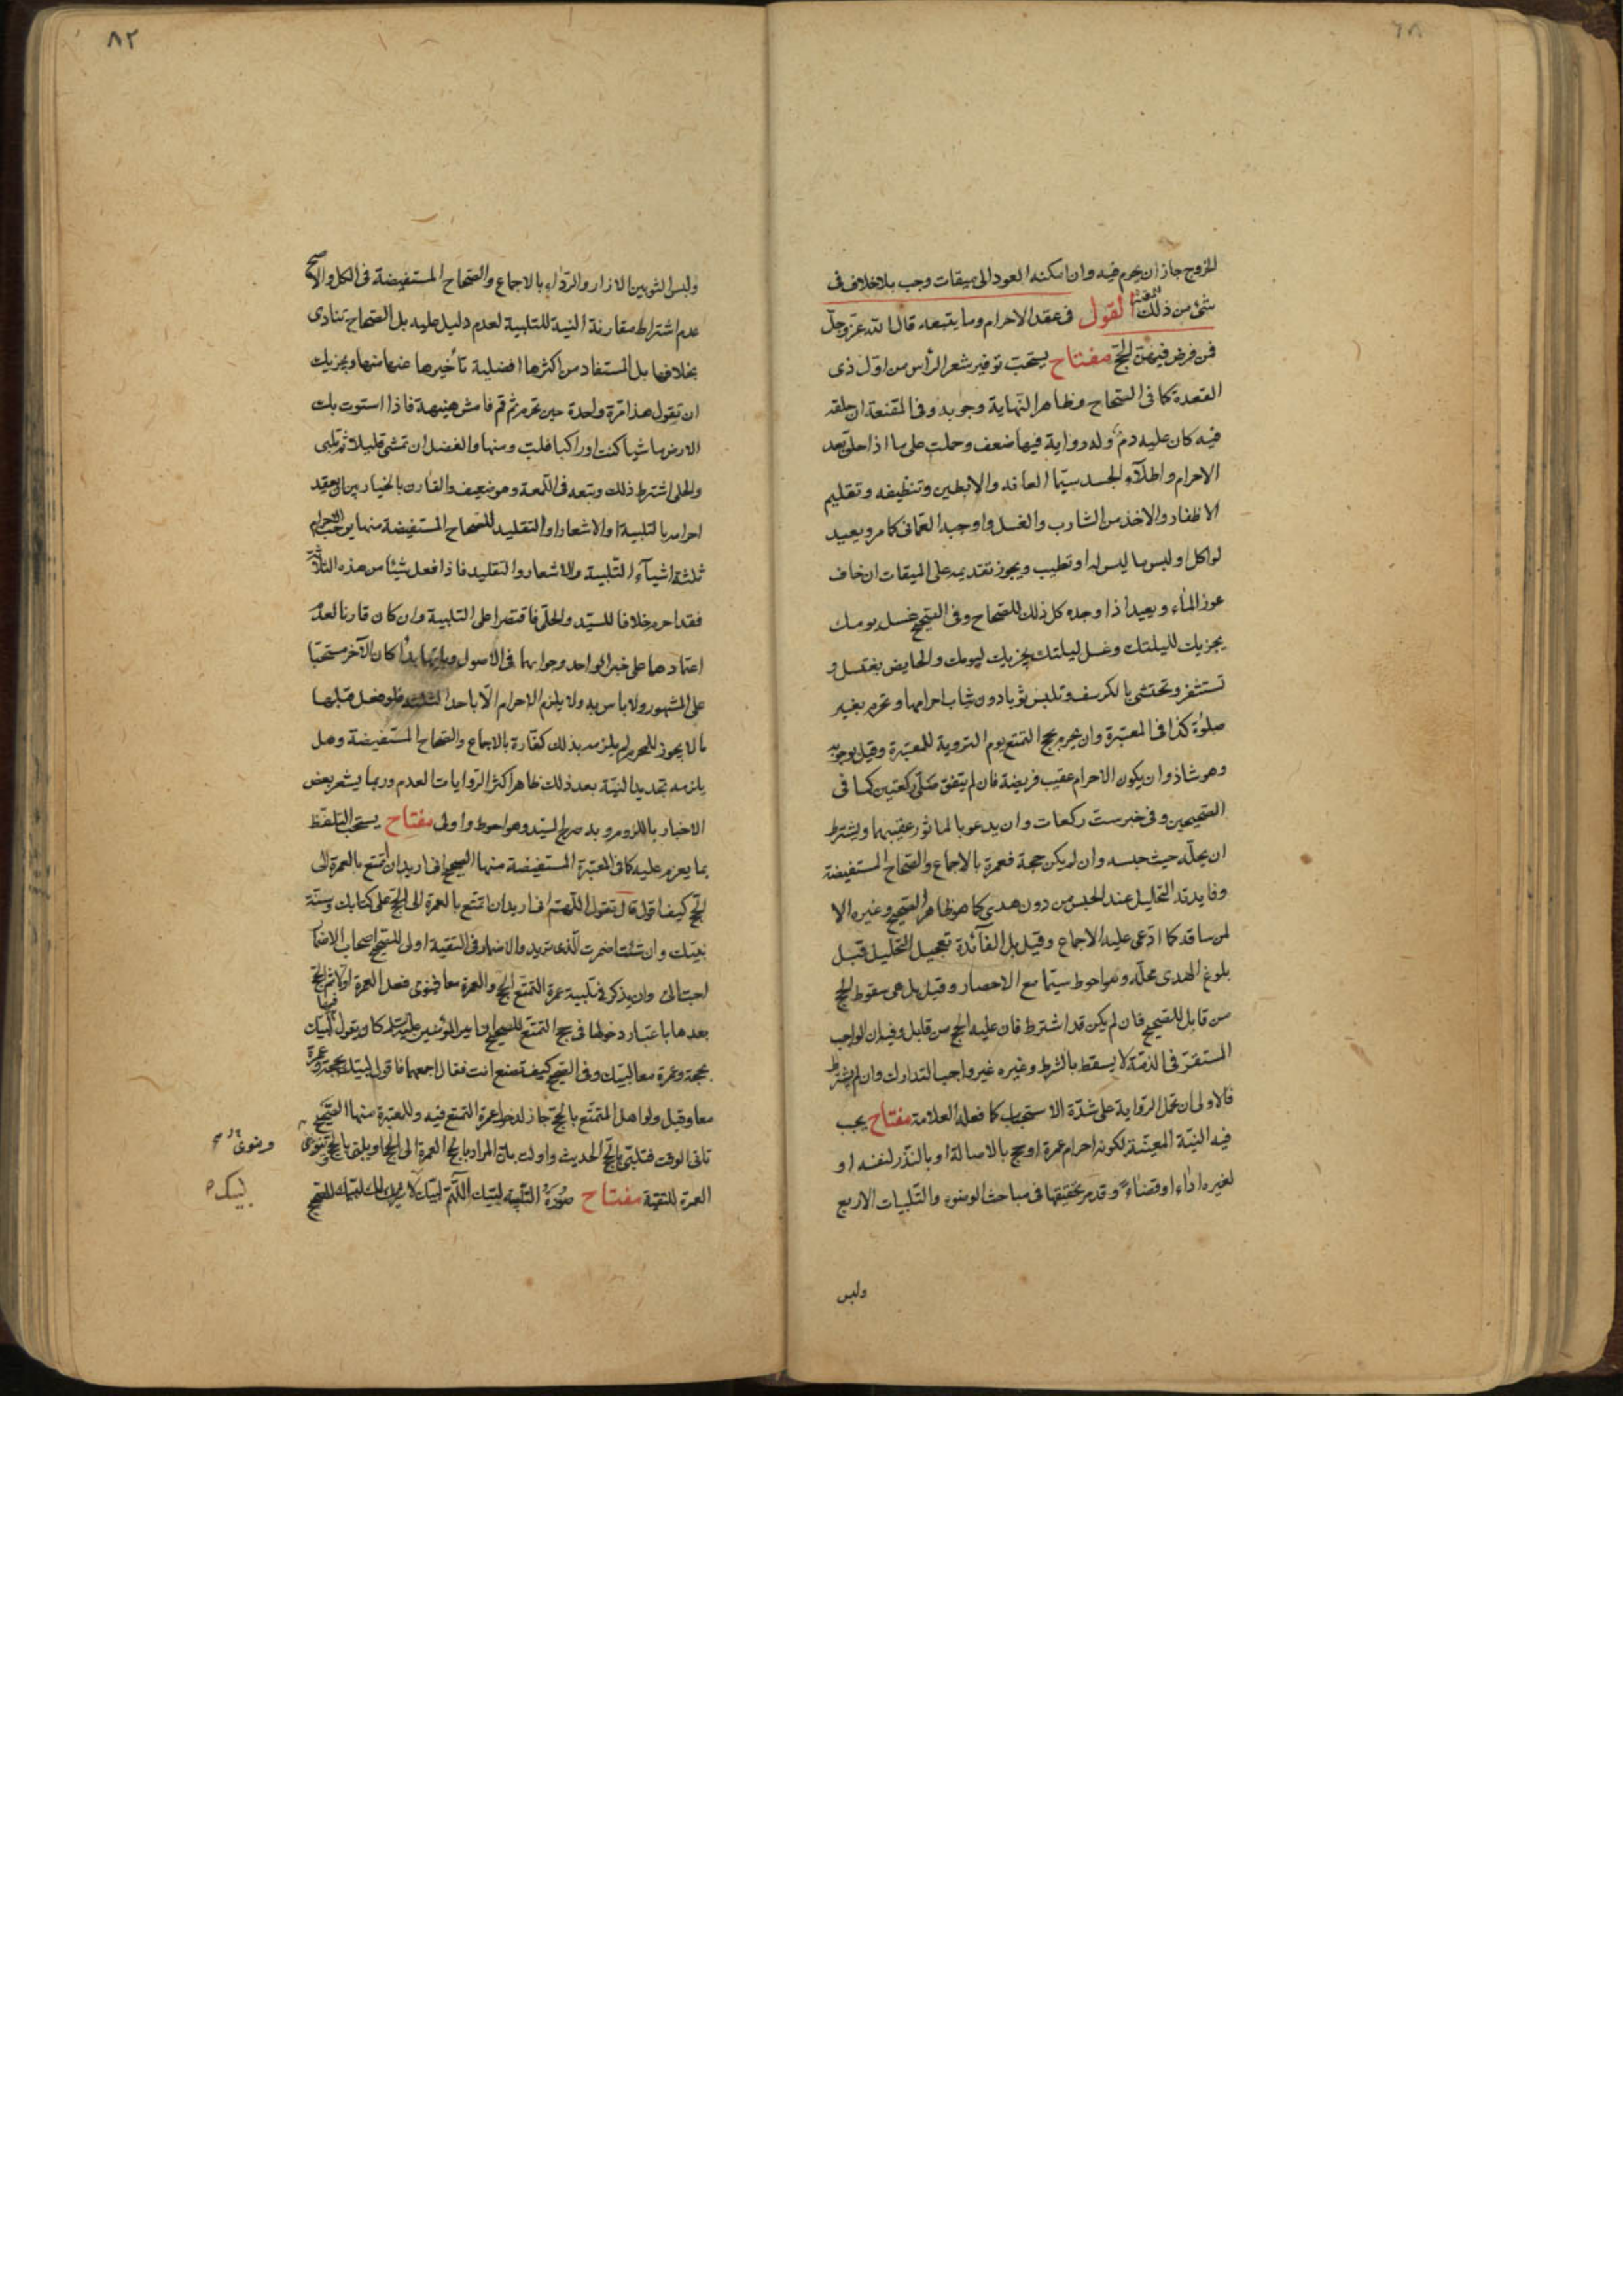 للخروج جاز ان يحرم فيه وان امكنه العود الى ميقات وجب بلا خلاف فى
شئ من ذلك للمعتبرة القول فى عقد الاحرام وما يتبعه قال الله عزوجل
فمن فرض فيهن الحج مفتاح يستحب توفير شعر الرأس من اول ذى
القعدة كما فى الصحاح وظاهر النهاية وجوبه وفى المقنعة ان حلقه
فيه كان عليه دم وله رواية فيها ضعف وحملت على ما اذا حلق بعد
الاحرام واطلاء الجسد سيما العانه والابطين وتنظيفه وتقليم
الاظفار والاخذ من الشارب والغسل واوجبه العمانى كما مر ويعيد
لو اكل او لبس ما ليس له او تطيب ويجوز تقديمه على الميقات ان خاف
عوز الماء ويعيد اذا وجده كل ذلك للصحاح وفى الصحيح غسل يومك
يجزيك لليلتك وغسل ليلتك يجزيك ليومك والحايض يغتسل و
تستثفر وتحتشى بالكرسف وتلبس ثوبا دون ثياب احرامها وتحرم بغير
صلوة كذا فى المعتبرة وان يحرم بحج التمتع يوم التروية للمعتبرة وقيل بوجوبه
وهو شاذ وان يكون الاحرام عقيب فريضة فان لم يتفق صلى ركعتين كما فى
الصحيحين وفى خبر ست ركعات وان يدعو بالماثور عقيبهما ويشترط
ان يحله حيث حبسه وان لم يكن حجة فعمرة بالاجماع والصحاح المستفيضة
وفايدته التحليل عند الحبس من دون هدى كما هو ظاهر الصحيح وغيره الا
لمن ساقه كما ادعى عليه الاجماع وقيل بل الفائدة تعجيل التحليل قبل
بلوغ الهدى محله وهو احوط سيما مع الاحصار وقيل بل هى سقوط الحج
من قابل للصحيح فان لم يكن قد اشترط فان عليه الحج من قابل وفيه ان الواجب
المستقر فى الذمة لا يسقط بالشرط وغيره غير واجب التدارك وان لم يشترط
فالاولى ان تحمل الرواية على شدة الاستحباب كما فعله العلامة مفتاح يجب
فيه النية المعينة لكونه احرام عمرة او حج بالاصالة او بالنذر لنفسه او
لغيره اداء او قضاء وقد مر تحقيقها فى مباحث الوضوء والتلبيات الاربع
ولبس
٨٢
ولبس الثوبين الازار والرداء بالاجماع والصحاح المستفيضة فى الكل والاصح
عدم اشتراط مقارنة النية للتلبية لعدم دليل عليه بل الصحاح تنادى
بخلافها بل المستفاد من اكثرها افضلية تأخيرها عنها منها ويجزيك
ان تقول هذا مرة واحدة حين تحرم ثم قم فامش هنيهة فاذا استوت بك
الارض ماشيا كنت او راكبا فلب ومنها والفضل ان تمشى قليلا ثم تلبى
والحلى اشترط ذلك وتبعه فى اللمعة وهو ضعيف والقارن بالخيار بين ان يعقد
احرامه بالتلبية او الاشعار او التقليد للصحاح المستفيضة منها يوجب الاحرام
ثلثة اشياء التلبية والاشعار والتقليد فاذا فعل شيئا من هذه الثلاثة
فقد احرم خلافا للسيد والحلى فاقتصرا على التلبية وان كان قارنا لعدم
اعتمادهما على خبر الواحد وجوابهما فى الاصول وبايها بدأ كان الآخر مستحبا
على المشهور ولا باس به ولا يلزم الاحرام الا باحد الثلثة فلو فعل قبلها
ما لا يجوز للمحرم لم يلزمه بذلك كفارة بالاجماع والصحاح المستفيضة وهل
يلزمه تجديد النية بعد ذلك ظاهر اكثر الروايات العدم وربما يشعر بعض
الاخبار باللزوم وبه صرح السيد وهو احوط واولى مفتاح يستحب التلفظ
بما يعزم عليه كما فى المعتبرة المستفيضة منها الصحيح انى اريد ان اتمتع بالعمرة الى
الحج كيف اقول قال تقول اللهم انى اريد ان اتمتع بالعمرة الى الحج على كتابك وسنة
نبيك وان شئت اضمرت الذى تريد والاضمار فى التقية اولى للصحيح اصحاب الاضمار
احب الى وان يذكر فى تلبية عمرة التمتع الحج والعمرة معا فينوى فعل العمرة اولا ثم الحج
بعدها باعتبار دخولها فى حج التمتع للصحيح ان امير المؤمنين عليه السلم كان يقول فيها لبيك
بحجة وعمرة معا لبيك وفى الصحيح كيف تصنع انت فقال اجمعهما فاقول لبيك بحجة وعمرة
معا وقيل ولو اهل المتمتع بالحج جاز لدخول عمرة التمتع فيه وللمعتبرة منها الصحيح
تاتى الوقت فتلبى بالحج الحديث واولت بان المراد بالحج العمرة الى الحج او يلبى بالحج وينوى
العمرة للتقية مفتاح صورة التلبية لبيك اللهم لبيك لا شريك لك لبيك للصحيح
وينوى
لبيك